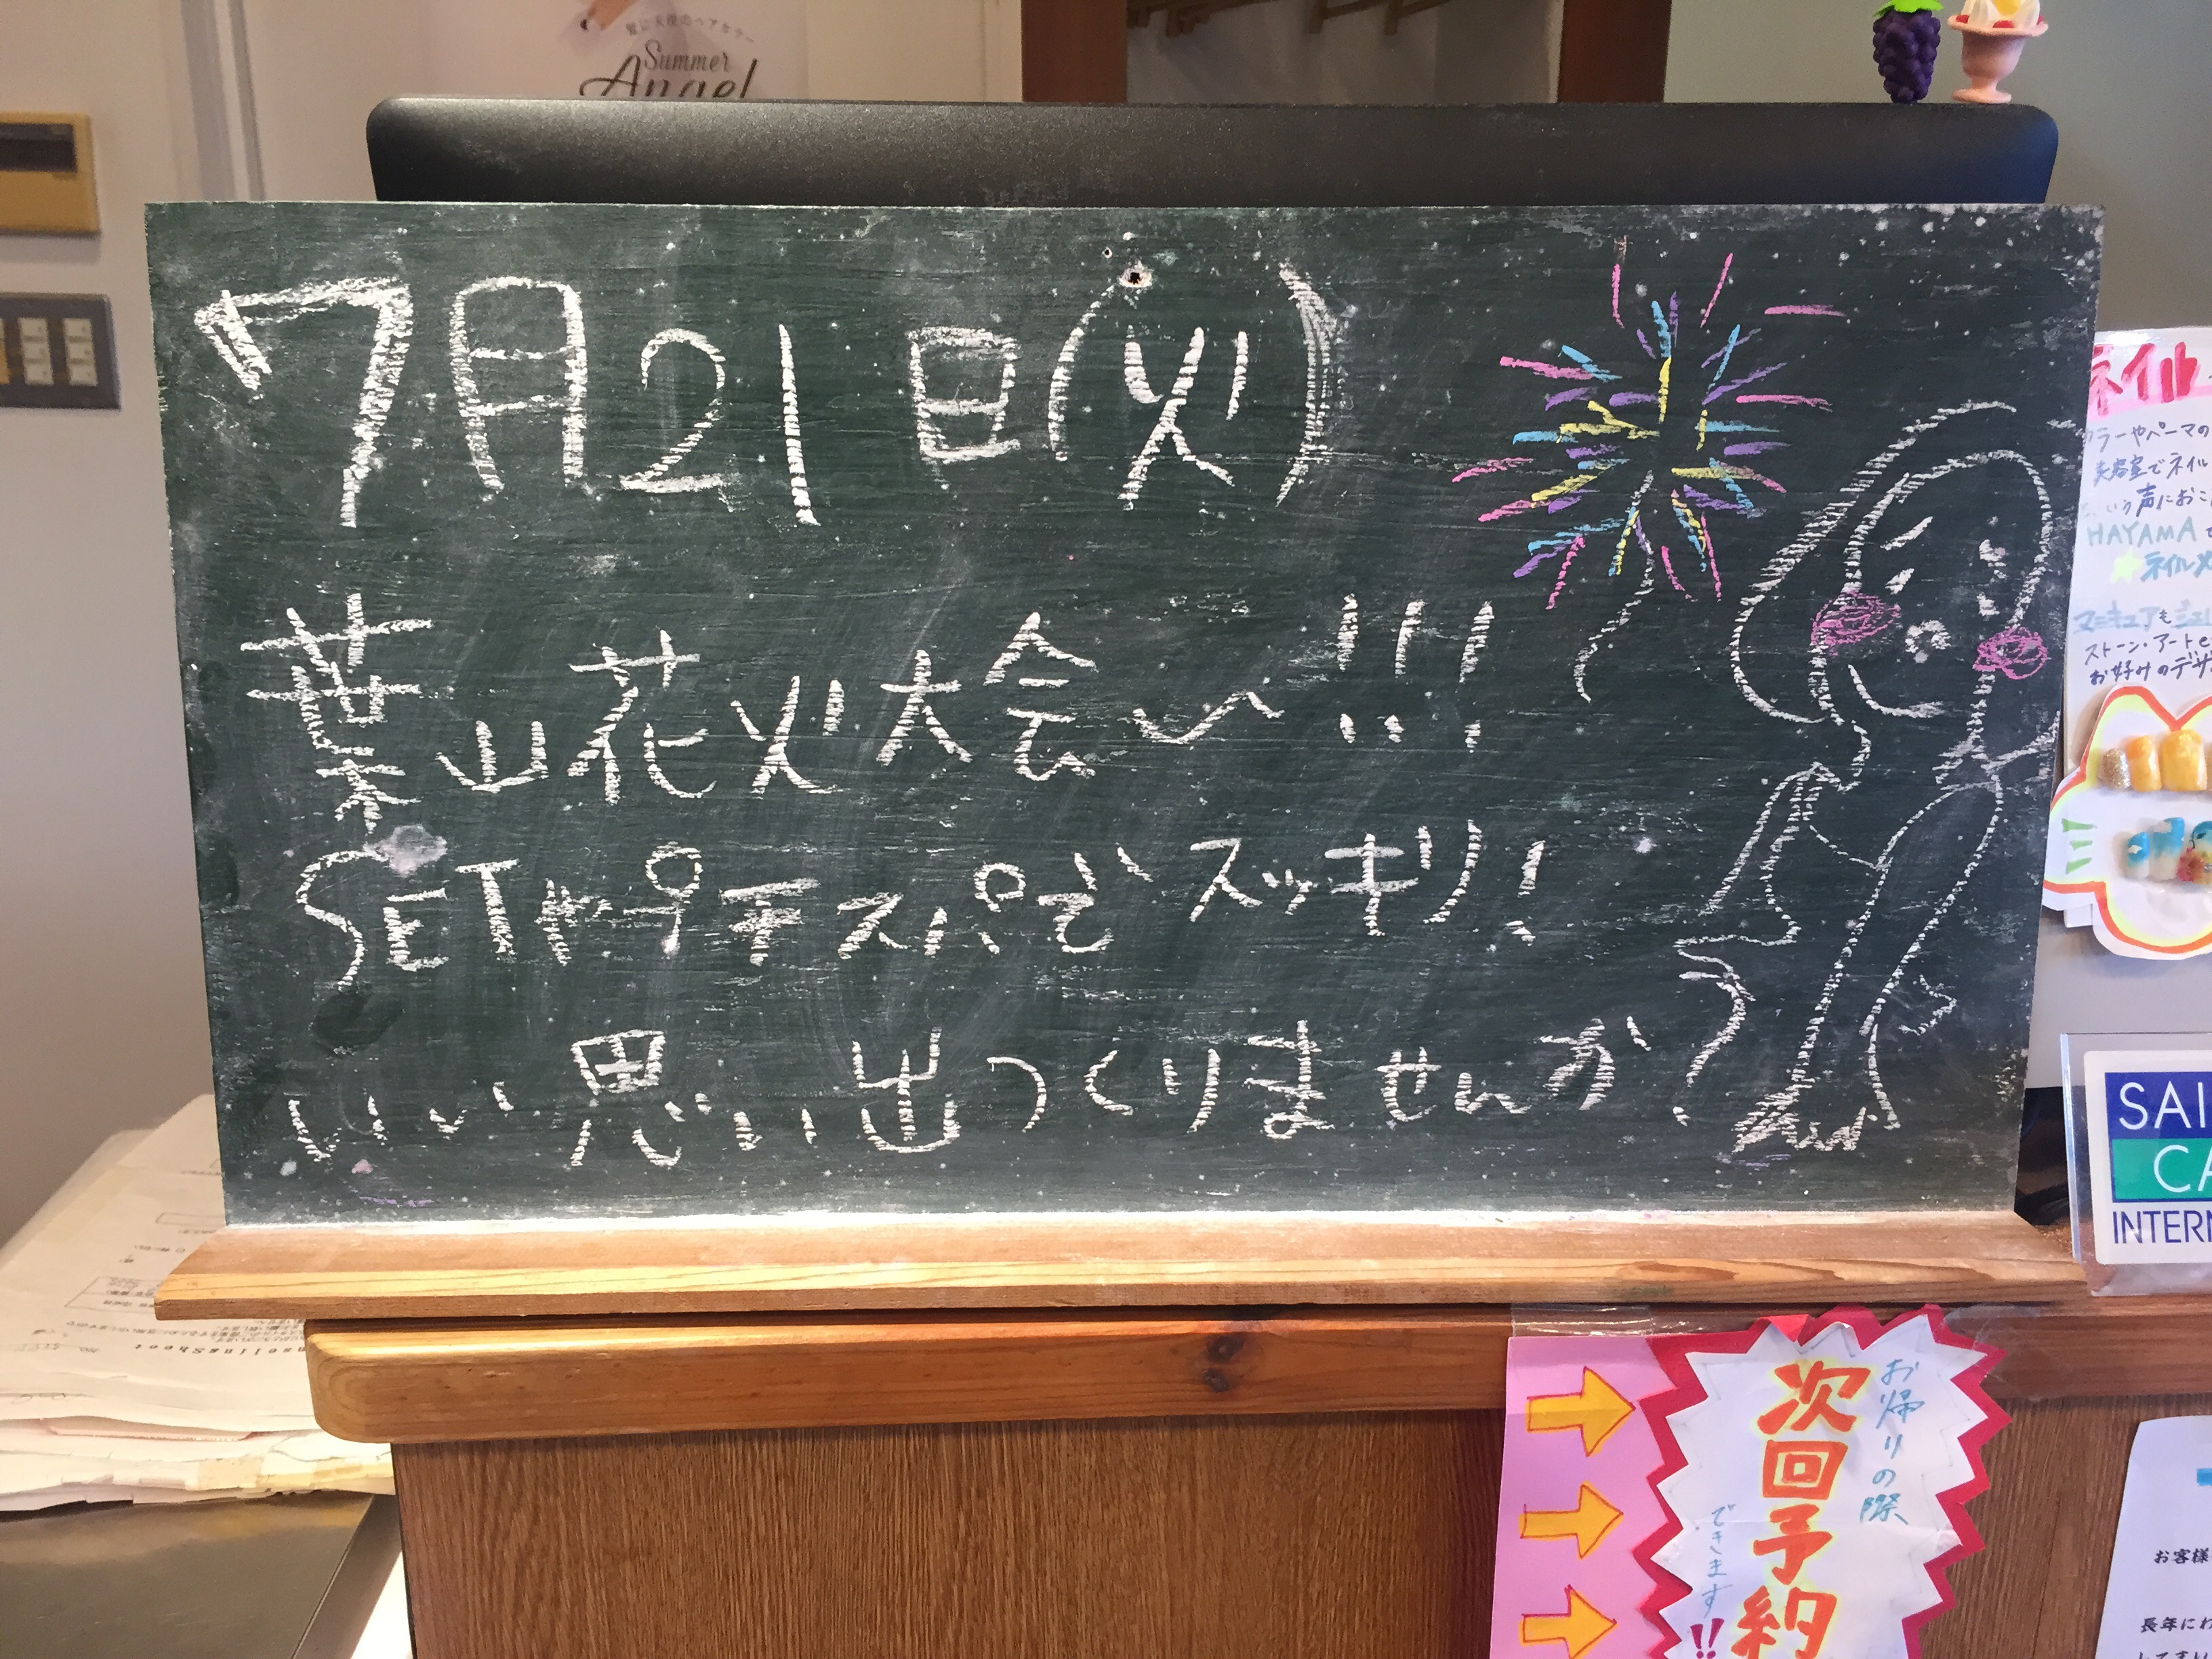 髪に天使のヘアセラー
Summer
Angel
7月21日(火)
葉山花火大会〜!!!
SETやプチスパでスッキリ!
いい思い出つくりませんか
ネイル
カラーやパーマの
美容室でネイル
いう声におこ
HAYAMA
ネイルメ
マニキュアもジェ
ストーン・アートと
お好みのデザ
SAI
CA
INTERN
お帰りの際
次回予約
できます!!
お客様
長年にわ
nselingSheet